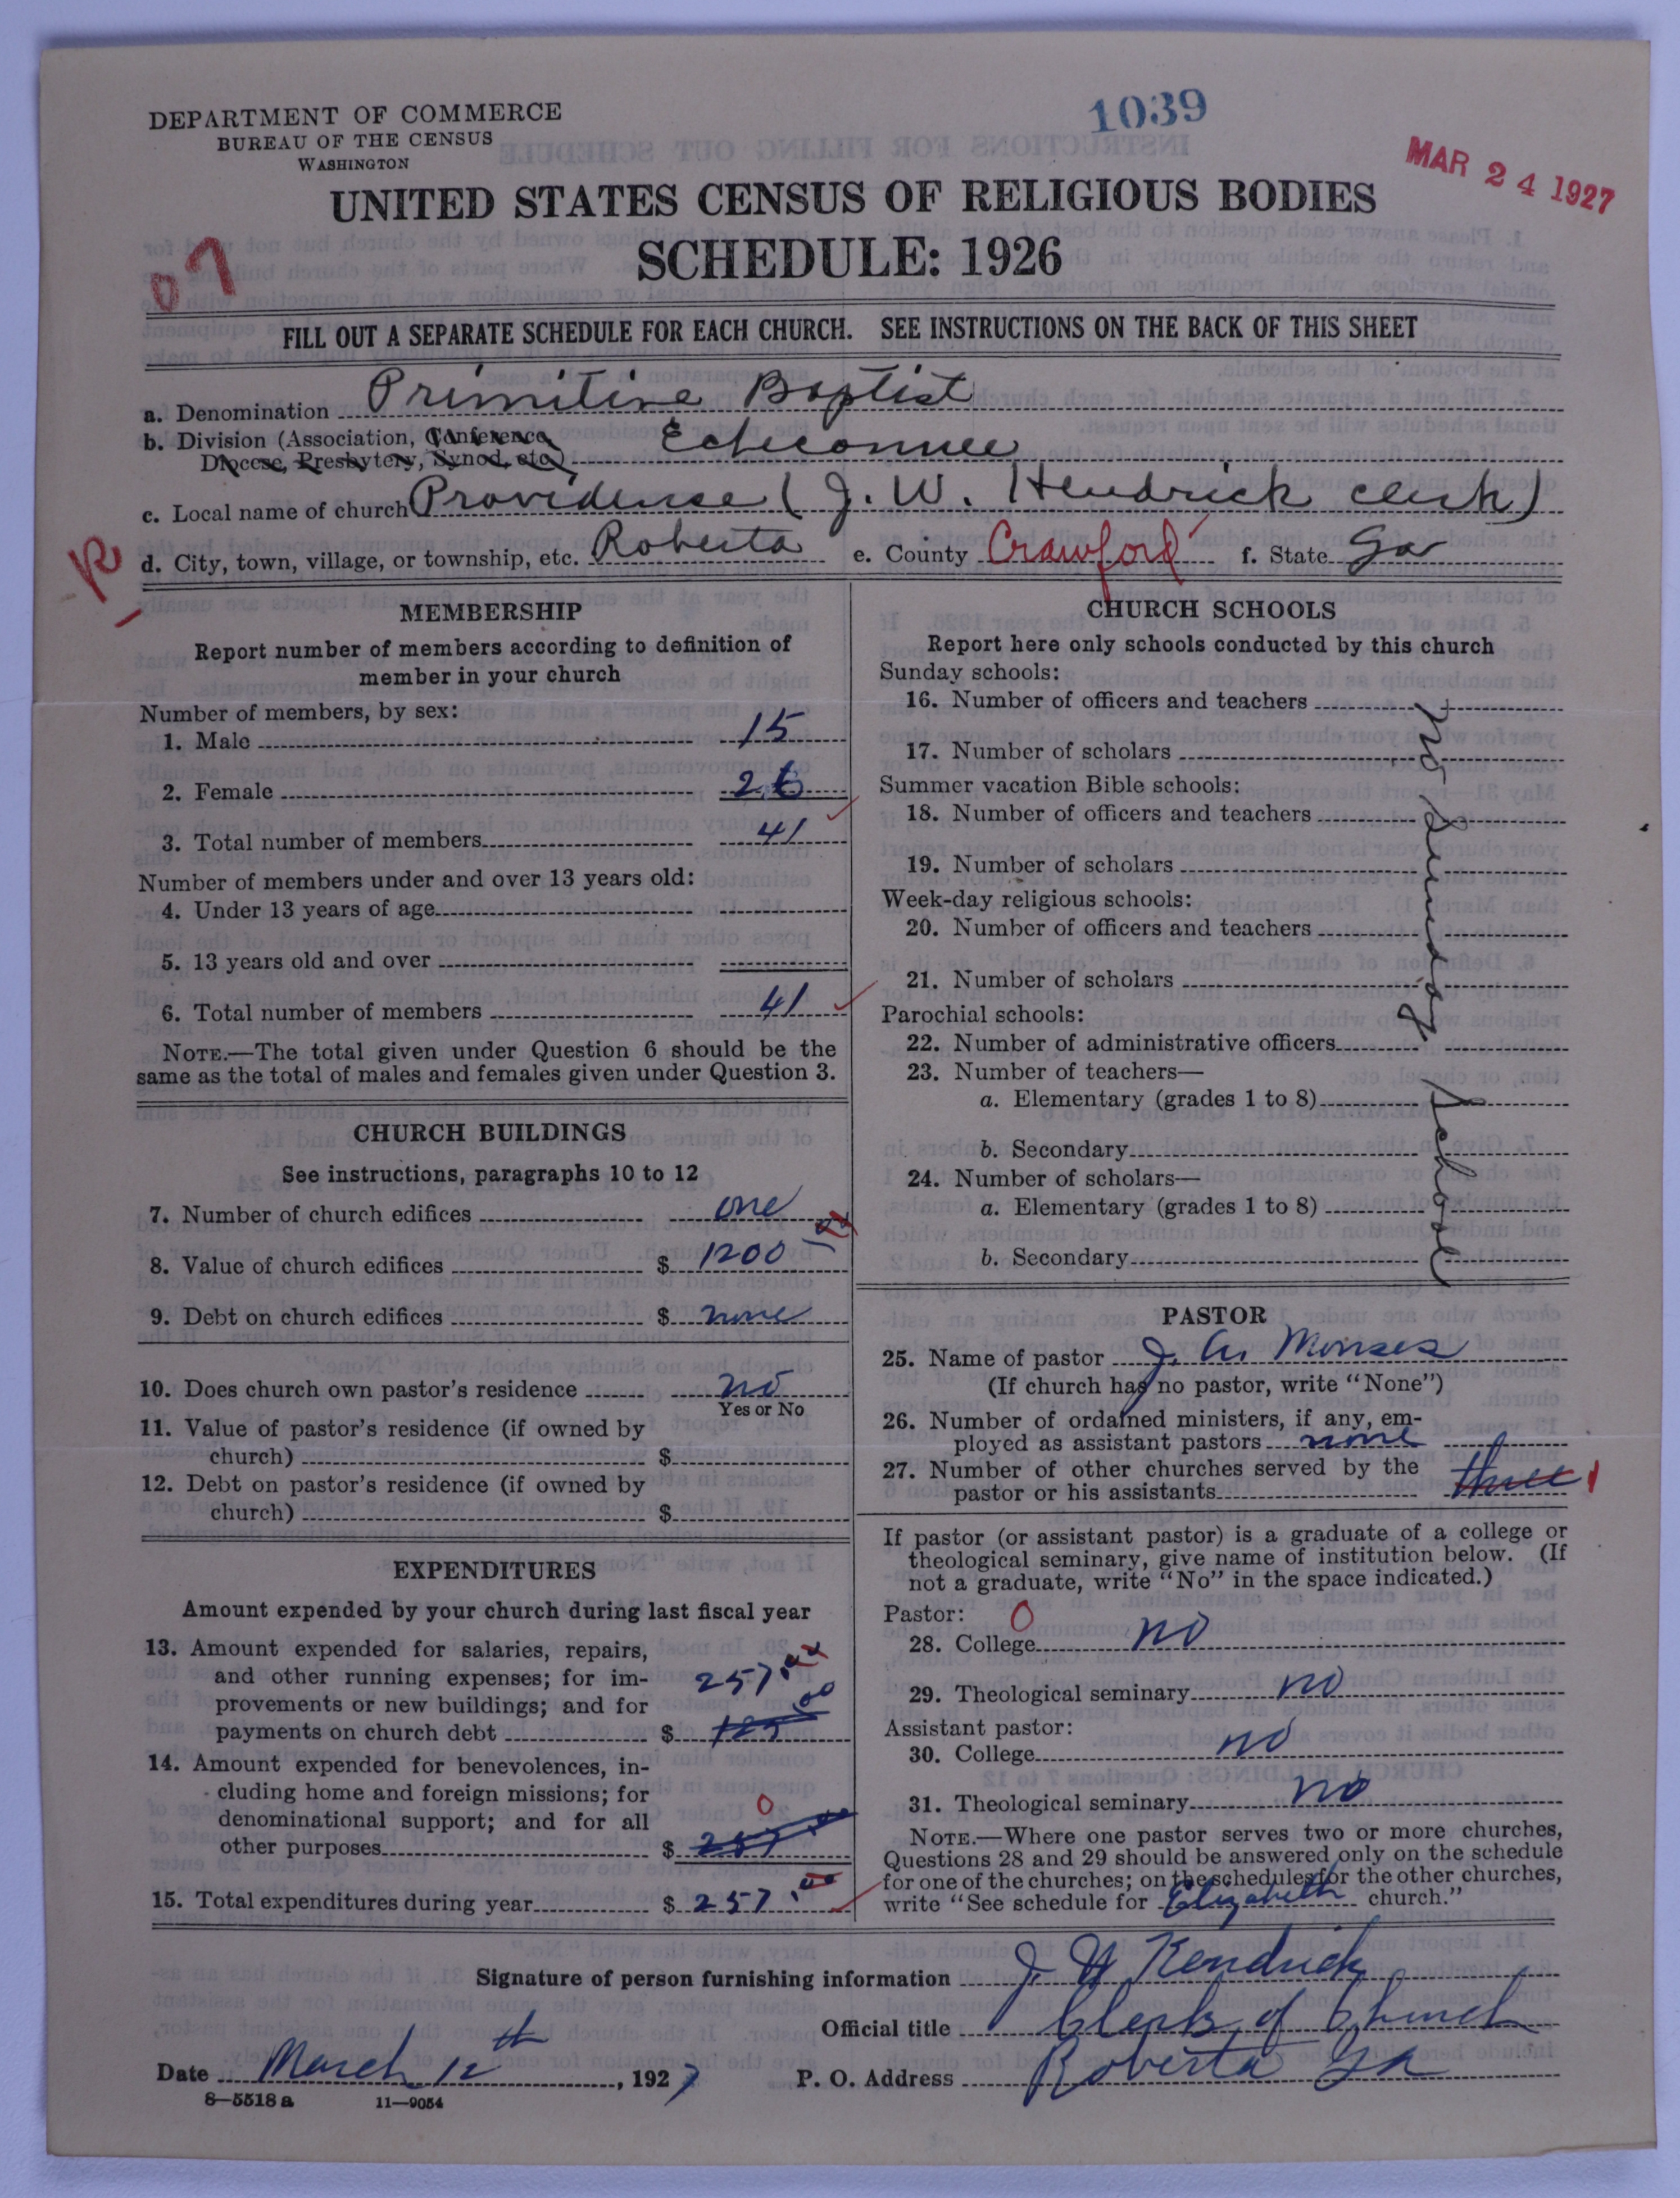 DEPARTMENT OF COMMERCE
BUREAU OF THE CENSUS
WASHINGTON
1039
MAR 24 1927
UNITED STATES CENSUS OF RELIGIOUS BODIES
SCHEDULE: 1926
07
FILL OUT A SEPARATE SCHEDULE FOR EACH CHURCH. SEE INSTRUCTIONS ON THE BACK OF THIS SHEET
a. Denomination Primitive Baptist
b. Division (Association, Conference, Echeconnee
Diocese, Presbytery, Synod, etc.)
c. Local name of church Providence (J. W. Hendrick clerk)
R
d. City, town, village, or township, etc. Roberta e. County Crawford f. State Ga
MEMBERSHIP
Report number of members according to definition of
member in your church
Number of members, by sex:
1. Male 15
2. Female 26
3. Total number of members 41
Number of members under and over 13 years old:
4. Under 13 years of age
5. 13 years old and over
6. Total number of members 41
NOTE.—The total given under Question 6 should be the
same as the total of males and females given under Question 3.
CHURCH BUILDINGS
See instructions, paragraphs 10 to 12
7. Number of church edifices one
8. Value of church edifices $ 1200 00
9. Debt on church edifices $ none
10. Does church own pastor's residence no
Yes or No
11. Value of pastor's residence (if owned by
church) $
12. Debt on pastor's residence (if owned by
church) $
EXPENDITURES
Amount expended by your church during last fiscal year
13. Amount expended for salaries, repairs,
and other running expenses; for im- 257.00
provements or new buildings; and for
payments on church debt $
14. Amount expended for benevolences, in-
cluding home and foreign missions; for
denominational support; and for all 0
other purposes $ 257 00
15. Total expenditures during year $ 257.00
CHURCH SCHOOLS
Report here only schools conducted by this church
Sunday schools:
16. Number of officers and teachers
17. Number of scholars
Summer vacation Bible schools:
18. Number of officers and teachers
19. Number of scholars
Week-day religious schools:
20. Number of officers and teachers
21. Number of scholars
Parochial schools:
22. Number of administrative officers
23. Number of teachers—
a. Elementary (grades 1 to 8)
b. Secondary
24. Number of scholars—
a. Elementary (grades 1 to 8)
b. Secondary
No Sunday School
PASTOR
25. Name of pastor J. W. Monses
(If church has no pastor, write "None")
26. Number of ordained ministers, if any, em-
ployed as assistant pastors none
27. Number of other churches served by the
pastor or his assistants three 1
If pastor (or assistant pastor) is a graduate of a college or
theological seminary, give name of institution below. (If
not a graduate, write "No" in the space indicated.)
Pastor: 0
28. College no
29. Theological seminary no
Assistant pastor:
30. College no
31. Theological seminary no
NOTE.—Where one pastor serves two or more churches,
Questions 28 and 29 should be answered only on the schedule
for one of the churches; on the schedules for the other churches,
write "See schedule for Elizabeth church."
Signature of person furnishing information J. W Kendrick
Official title Clerk of Church
Date March 12th, 1927 P. O. Address Roberta Ga
8—5518 a 11—9054